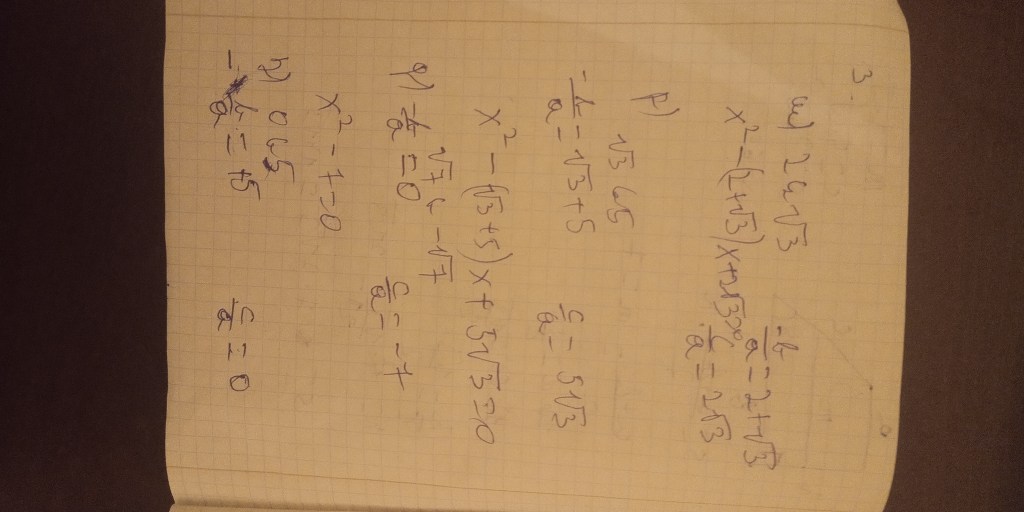 3.
ш) 2 и √3
-b/a = 2+√3
x² - (2+√3)x + 2√3 = 0
c/a = 2√3
р) √3 и 5
-b/a = √3 + 5
c/a = 5√3
x² - (√3+5)x + 5√3 = 0
√7 и -√7
-b/a = 0
c/a = -7
x² - 7 = 0
0 и 5
-b/a = +5
c/a = 0